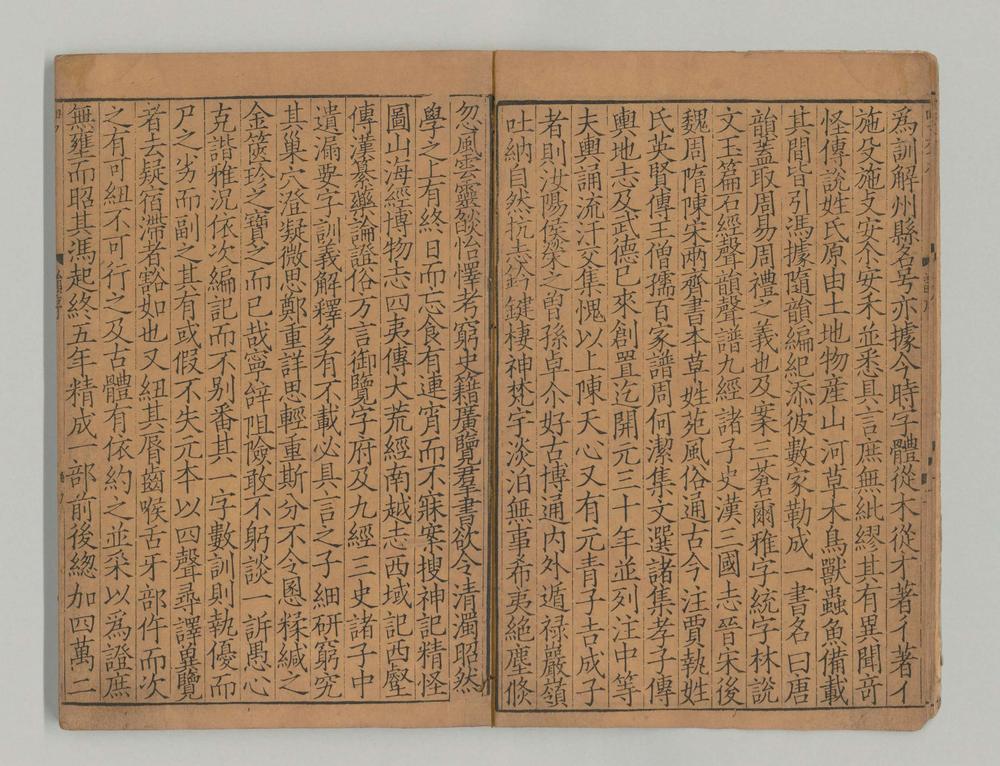 為訓解州縣名号亦據今時字體從木從才著彳著亻
施殳施攴安尒安禾並悉具言庶無紕繆其有異聞竒
怪傳説姓氏原由土地物産山河草木鳥獸蟲魚備載
其間皆引馮據隨韻編紀添彼數家勒成一書名曰唐
韻蓋取周易周禮之義也及案三蒼爾雅字統字林説
文玉篇石經聲韻聲譜九經諸子史漢三國志晉宋後
魏周隋陳宋兩齊書本草姓苑風俗通古今注賈執姓
氏英賢傳王僧孺百家譜周何潔集文選諸集孝子傳
輿地志及武德已來創置迄開元三十年並列注中等
夫輿誦流汗交集愧以上陳天心又有元青子吉成子
者則汝陽侯榮之曽孫卓尒好古博通内外遁禄巖嶺
吐納自然抗志鈐鍵棲神梵宇淡泊無事希夷絶塵倏
忽風雲靈歘怡懌考窮史籍廣覽羣書欲令清濁昭然
學之上有終日而忘食有連宵而不寐案搜神記精怪
圖山海經博物志四夷傳大荒經南越志西域記西壑
傳漢纂藥論證俗方言御覽字府及九經三史諸子中
遺漏要字訓義解釋多有不載必具言之子細研窮究
其巢穴澄凝微思鄭重詳思輕重斯分不令慁糅緘之
金篋珍之寶之而已哉寧辭阻險敢不躬談一訴愚心
克諧雅况依次編記而不别番其一字數訓則執優而
尸之劣而副之其有或假不失元本以四聲尋譯兾覽
者去疑宿滯者豁如也又紐其脣齒喉舌牙部仵而次
之有可紐不可行之及古體有依約之並采以為證庶
無壅而昭其馮起終五年精成一部前後緫加四萬二